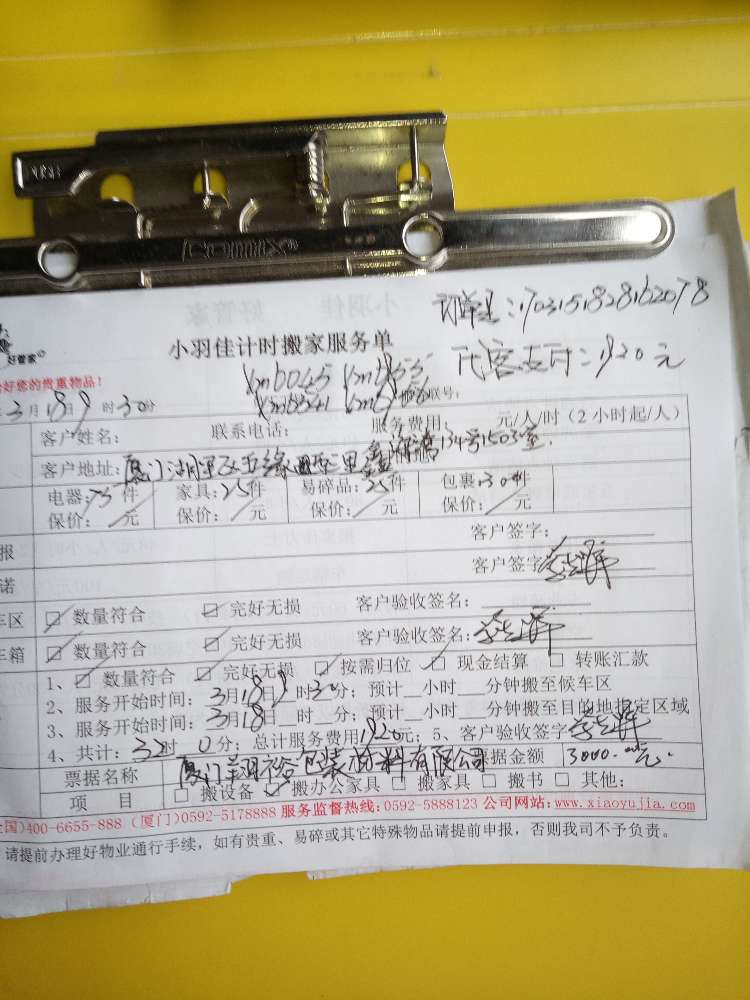 订单号：1703151828162078
好管家
小羽佳计时搬家服务单
代客支付：1920元
好您的贵重物品！
3月18日9时30分
服务费用：元/人/时（2小时起/人）
客户姓名： 联系电话：
客户地址：厦门湖里区五缘 134号1503室.
电器：件 家具：25件 易碎品：25件 包裹：30件
保价：/元 保价：/元 保价：/元 保价：/元
报 客户签字：
诺 客户签字
车区 □ 数量符合 □ 完好无损 客户验收签名：
车箱 □ 数量符合 □ 完好无损 客户验收签名：
1、□ 数量符合 □ 完好无损 □ 按需归位 □ 现金结算 □ 转账汇款
2、服务开始时间：3月18日9时30分；预计__小时__分钟搬至候车区
3、服务开始时间：3月18日__时__分；预计__小时__分钟搬至目的地指定区域
4、共计：32时0分；总计服务费用1920元；5、客户验收签字
票据名称 厦门 包装材料有限公司 票据金额 3000.元
项 目 □ 搬设备 □ 搬办公家具 □ 搬家具 □ 搬书 □ 其他：
国)400-6655-888 (厦门)0592-5178888 服务监督热线:0592-5888123 公司网站:www.xiaoyujia.com
请提前办理好物业通行手续，如有贵重、易碎或其它特殊物品请提前申报，否则我司不予负责。